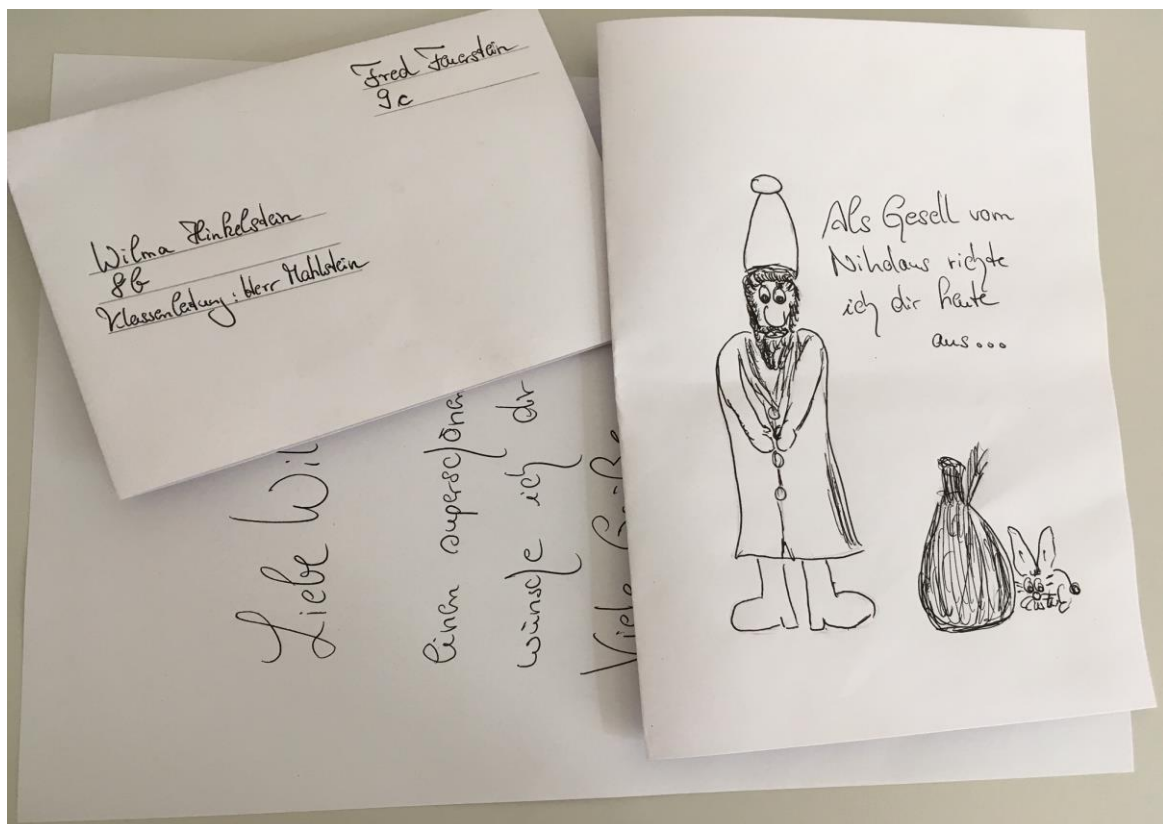 Fred Feuerstein
9c
Wilma Hinkelstein
8b
Klassenleitung: Herr Mahlstein
Als Gesell vom
Nikolaus richte
ich dir heute
aus...
Liebe Wil
Einen superschönen
wünsche ich dir
Viele